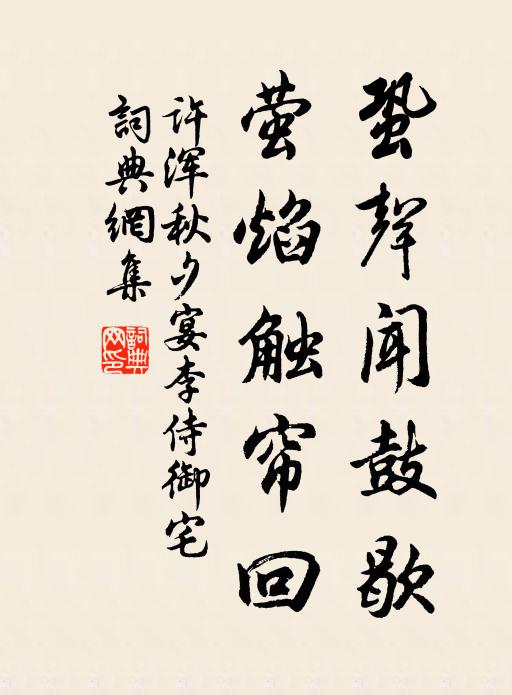 蛩聲闻鼓歇
萤焰触帘回
许浑秋夕宴李侍御宅
詞典網集
詞典网印